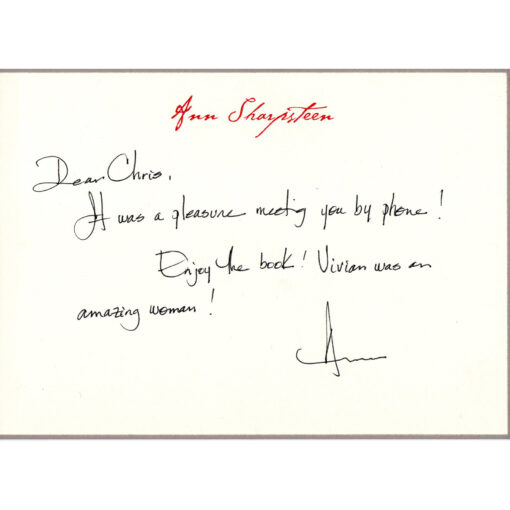 Ann Sharpsteen
Dear Chris,
It was a pleasure meeting you by phone!
Enjoy the book! Vivian was an
amazing woman!
Ann